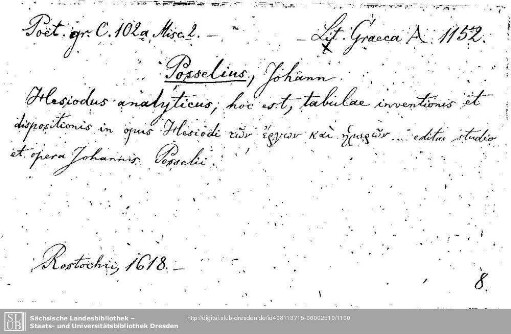 Poët. gr. C. 102a, Misc. 2. — Lit. Graeca A 1152.
Posselius, Johann
Hesiodus analyticus, hoc est, tabulae inventionis et
dispositionis in opus Hesiodi τῶν ἔργων καὶ ἡμερῶν... editae studio
et opera Johannis Posselii.
Rostochii, 1618. —
8.
Sächsische Landesbibliothek –
Staats- und Universitätsbibliothek Dresden